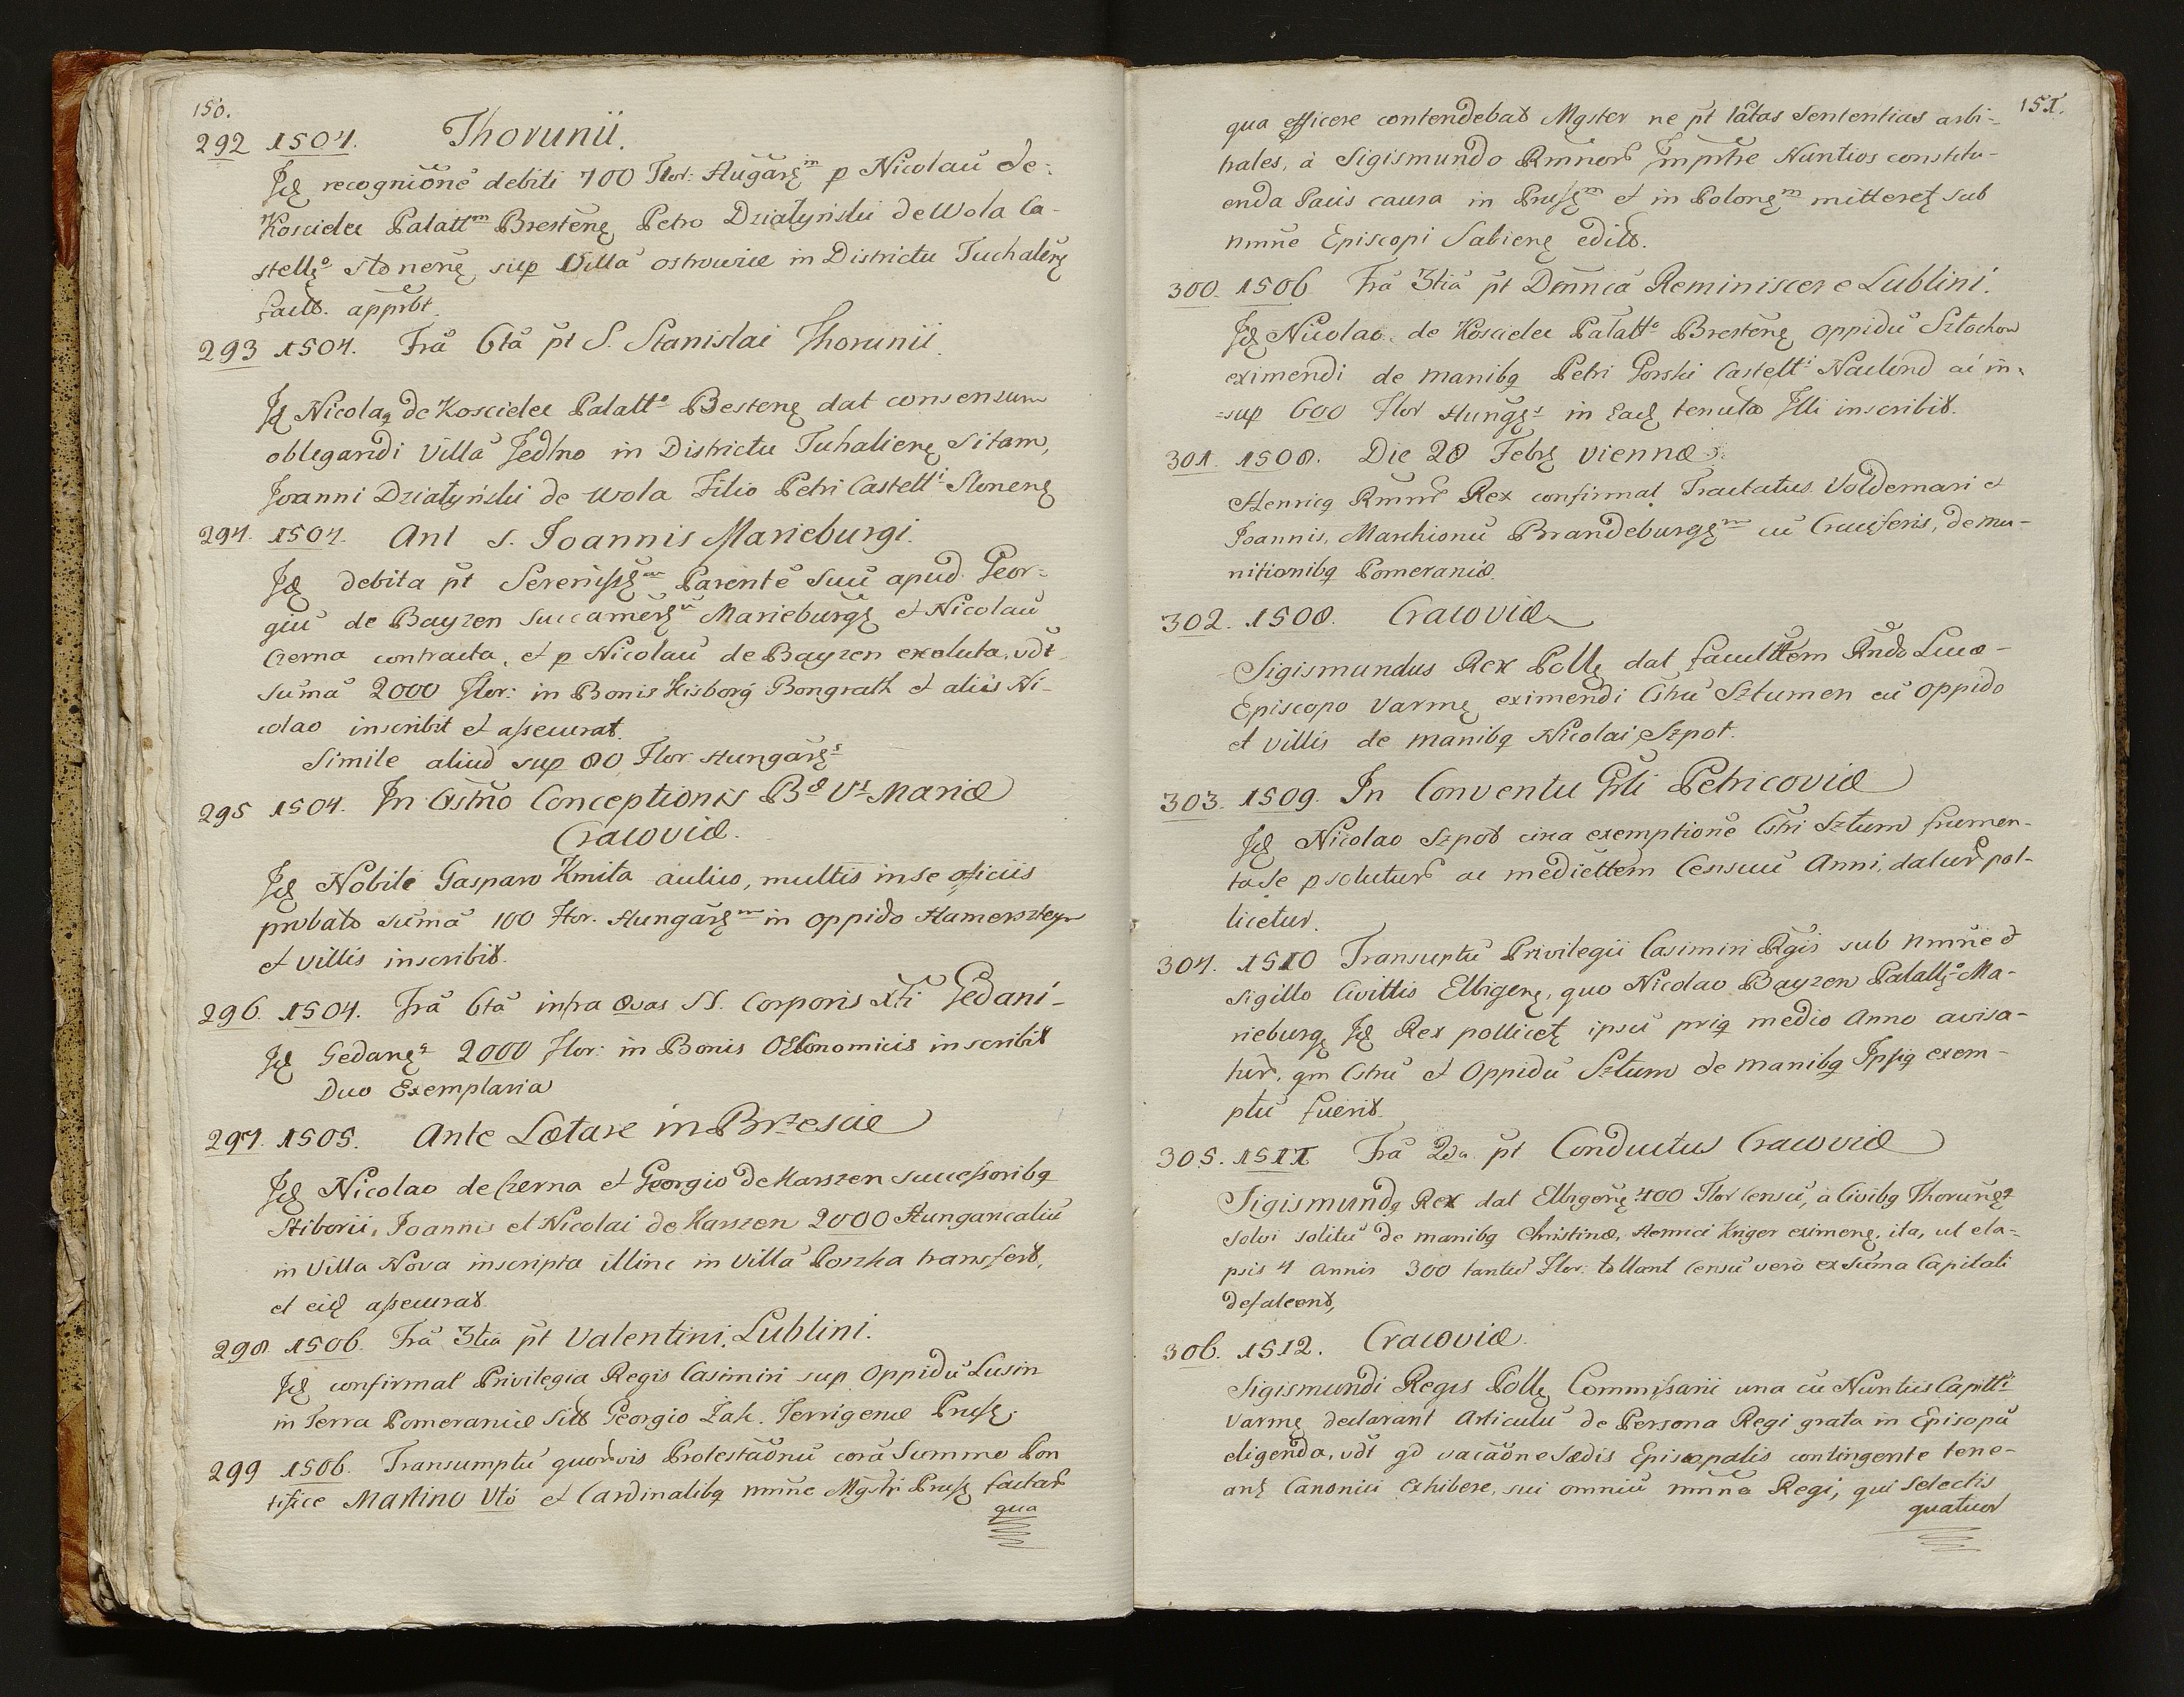 150.
292 1504. Thorunii.
Id recognitione debiti 700 Flor: Hugarę m p Nicolaū de
Koscielee Palattm Brestenę Petro Działyński de Wola Ca-
stellę o Słonenę sup Villa ostrowice in Districtu Tuchalenę
fact. approbt.
293 1504. Fra 6ta pt S. Stanislai Thorunii.
Id Nicolaq de Koscielee Palatt o Bestenę dat consensum
oblegandi Villā Jedlno in Districtu Tuhalienę Sitam,
Joanni Działyński de Wola Filio Petri Castetti Slonenę
294. 1504. Ant S. Joannis Marieburgi.
Id debita pt Sereñissę m Parentē Suū apud Geor-
giū de Bayzen Succamerę u Marieburgę et Nicolaū
Czerna contracta, et p Nicolaū de Bayzen exoluta, vdt
sumā 2000 flor: in Bonis Kisborg Bongrath et aliis Ni-
colao inscribit et assecurat.
Simile aliud sup 80 Flor Hungarę s
295 1504. In Cstño Conceptionis B æ V s Mariæ
Cracoviæ.
Id Nobile Gasparo Kmita aulico, multis in se oficiis
probato sumā 100 Flor. Hungarę m in oppido Hamerszteyn
et villis inscribit.
296. 1504. Fra 6ta infra 8vas SS. Corporis Xti Gedani-
Id Gedanę s 2000 flor: in Bonis OEkonomicis inscribit
Duo Exemplaria
297. 1505. Ante Lætare in Brzescie
Id Nicolao de Czerna et Georgio de Karszen successoribq
Stiborii, Joannis et Nicolai de Karszen 2000 Hungaricaliū
in Villa Nova inscripta illinc in Villā Poszka transfert,
et eid assecurat
298. 1506. Fra 3tia pt Valentini. Lublini.
Id confirmat Privilegia Regis Casimiri sup Oppidū Lusin
in Terra Pomeraniæ Sitt Georgio Zak. Terrigenæ Prusę.
299 1506. Transumptū quorvis Protestāōnū corā Summo Pon
tifice Martino Vto et Cardinalibq nmñe Mgstri Prusę factar
qua
151.
qua efficere contendebat Mgster ne pt latas Sententias arbi-
trales, à Sigismundo Rmñor Impr̃tre Nuntios constitu-
enda Pacis causa in Prusę m et in Polonę m mitteret sub
nmñe Episcopi Sabienę edit.
300. 1506 Fra 3tia pt Dmñca Reminiscere Lublini.
Id Nicolao de Koscielee Palatt o Brestenę oppidū Szłochow
eximendi de manibq Petri Gorski Castetti Naclend ac in-
=sup 600 Flor Hungę s in ead tenuta Illi inscribit.
301. 1508. Die 28 Febrę Viennæ.
Henricq Rmnr Rex confirmat Tractatus Voldemari et
Joannis, Marchionū Brandeburgę m cū Cruciferis, de mu-
nitionibq Pomeraniæ.
302. 1508. Cracoviæ
Sigismundus Rex Pollę dat facultttem Rndo Lucæ-
Episcopo Varmę eximendi Cstrū Sztumen cū oppido
et villis de manibq Nicolai Szpot.
303. 1509. In Conventu Gr̃li Petricoviæ
Id Nicolao Szpot circa exemptionē Cstri Sztum frumen-
ta se psolutur ac medietttem Censuū Anni, datur pol-
licetur.
304. 1510 Transumtū Privilegii Casimiri Rgis sub nmñe et
Sigillo Civittis Elbigenę, quo Nicolao Bayzen Palattę o Ma-
rieburgę Id Rex pollicetę ipsū priq medio Anno avisa-
tur, qm Cstrū et Oppidū Sztum de manibq Ipsiq exem-
ptū fuerit.
305. 1511 Fra 2da pt Conductus Cracoviæ
Sigismundq Rex dat Elbigenę 400 Flor censū, à Civibq Thorunę s
solvi solitū de manibq Christinæ, Henrici Kriger eximenę, ita, ut ela-
psis 4 annis 300 tantū Flor: tollant Censū verò ex Suma Capitali
defalcent,
306. 1512. Cracoviæ.
Sigismundi Regis Pollę Commissarii una cū Nuntiis Capitti
Varmę declarant Articulū de Persona Regi grata in Episcopū
eligenda, vdt qd vacāōne Sædis Episcopalis contingente tene-
antę Canonici Exhibere, sui omniū nmña Regi, qui Selectis
quatuor